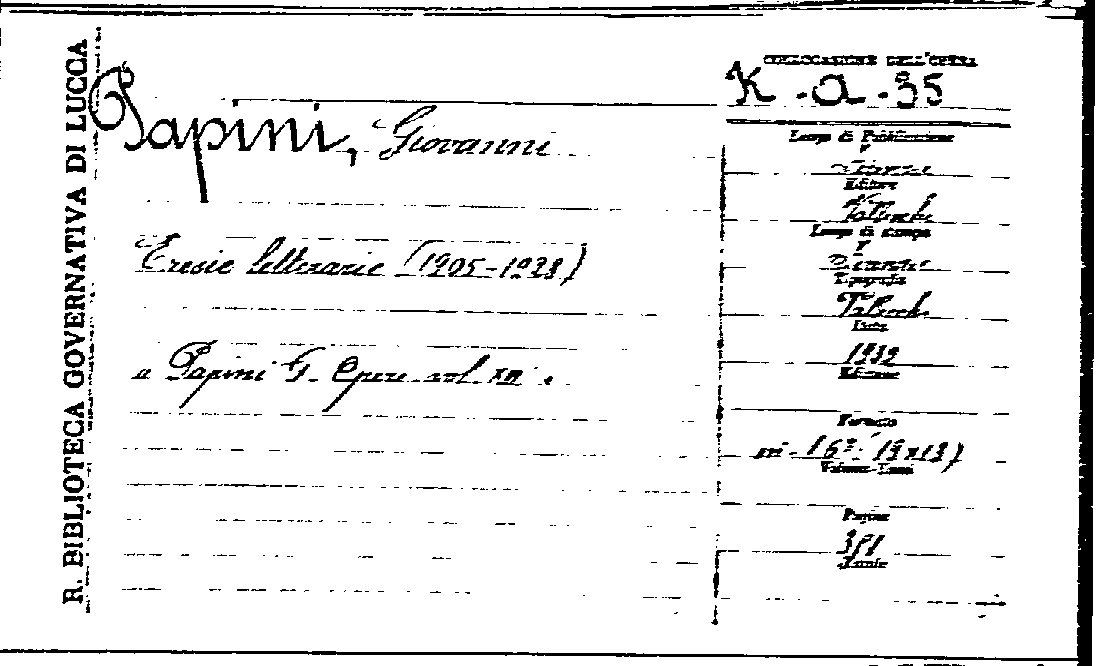 R. BIBLIOTECA GOVERNATIVA DI LUCCA
Papini, Giovanni
Eresie letterarie (1905-1928)
a Papini G. Opere vol. XII.
COLLOCAZIONE DELL'OPERA
K-a-35
Luogo di Pubblicazione
Firenze
Editore
Vallecchi
Luogo di stampa
Firenze
Tipografia
Vallecchi
Data
1932
Edizione
Formato
in-16º (19x13)
Volume-Tomi
Pagine